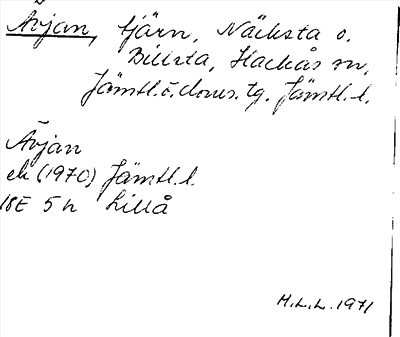 Ärjan, tjärn, Näcksta o.
Billsta, Hackås sn,
Jämtl. ö. doms. tg. Jämtl. l.
Ärjan
ek (1970) Jämtl. l.
18E 5h Lillå
M.L.L. 1971